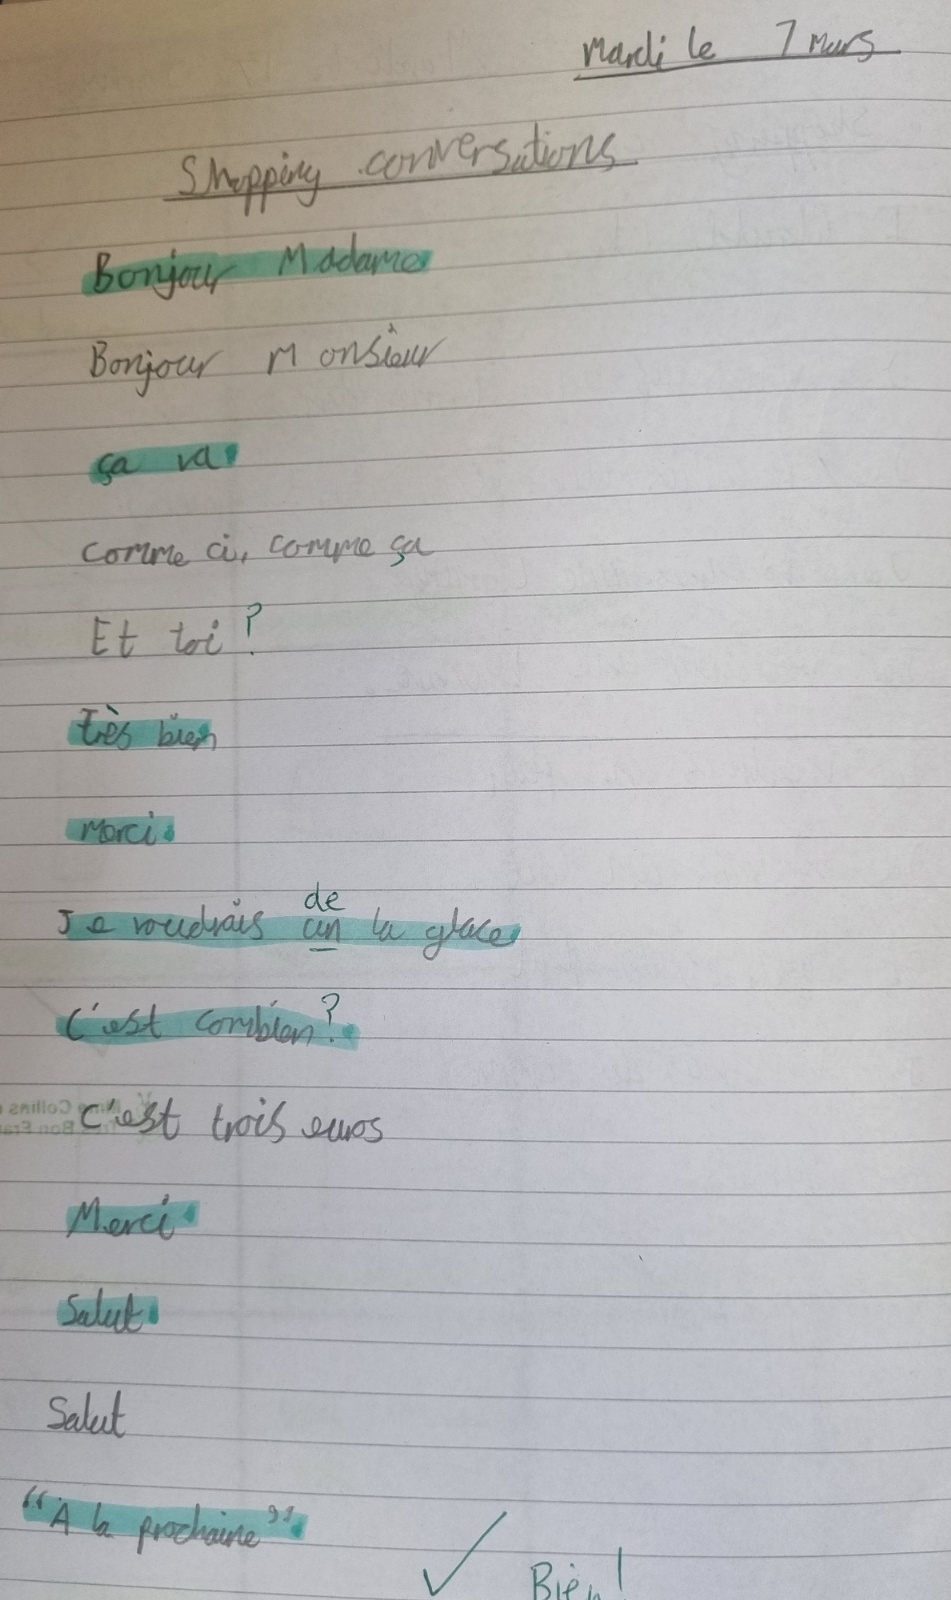 Mardi le 7 Mars
Shopping conversations
Bonjour Madame
Bonjour Monsieur
ça va
Comme ci, comme ça
Et toi ?
très bien
Merci
de
Je voudrais un la glace
C'est combien?
C'est trois euros
Merci
Salut
Salut
"A la prochaine"
Bien!